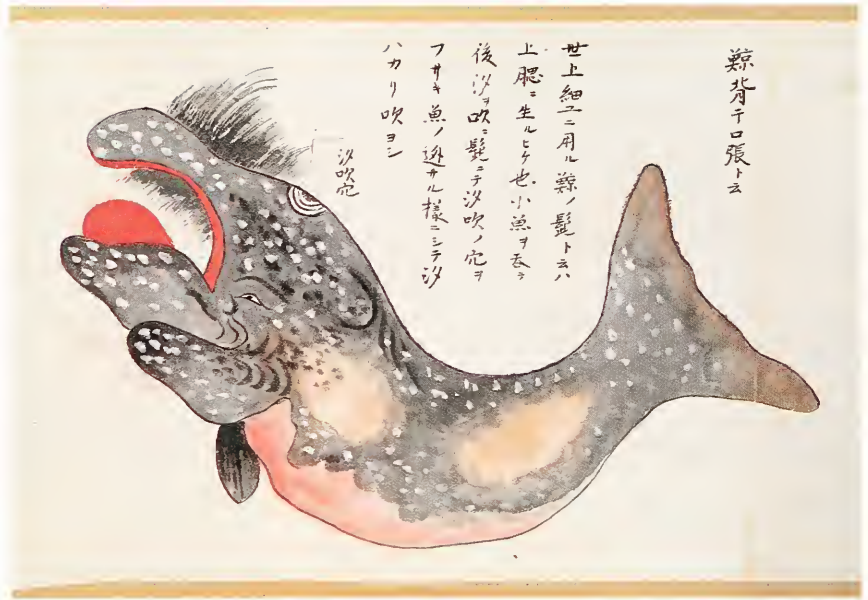 鯨背テ口張ト云
世上細工ニ用ル鯨ノ髭ト云ハ
上腮ニ生ルヒゲ也小魚ヲ呑テ
後汐ヲ吹ニ髭ニテ汐吹ノ穴ヲ
フサキ魚ノ逃サル様ニシテ汐
ハカリ吹ヨシ
汐吹穴